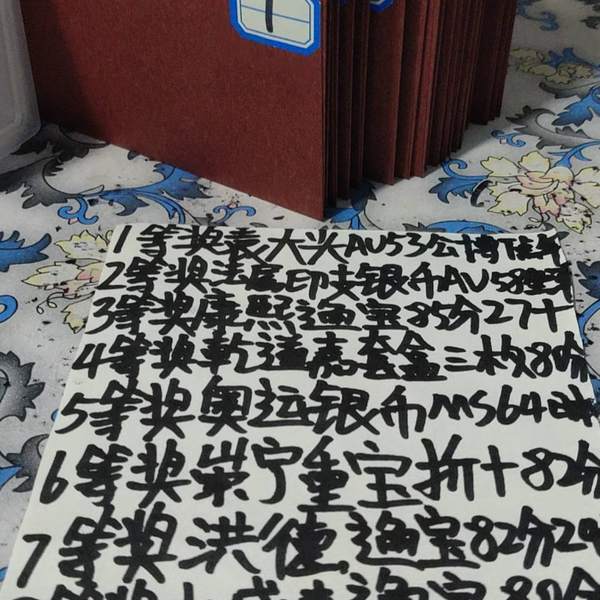 1
1等奖袁大头AU53公博
2等奖法属印支银币AU58
3等奖康熙通宝85分27十
4等奖乾道嘉套盒三枚80分
5等奖奥运银币MS64
6等奖崇宁重宝折十82分
7等奖洪德通宝82分2
等奖